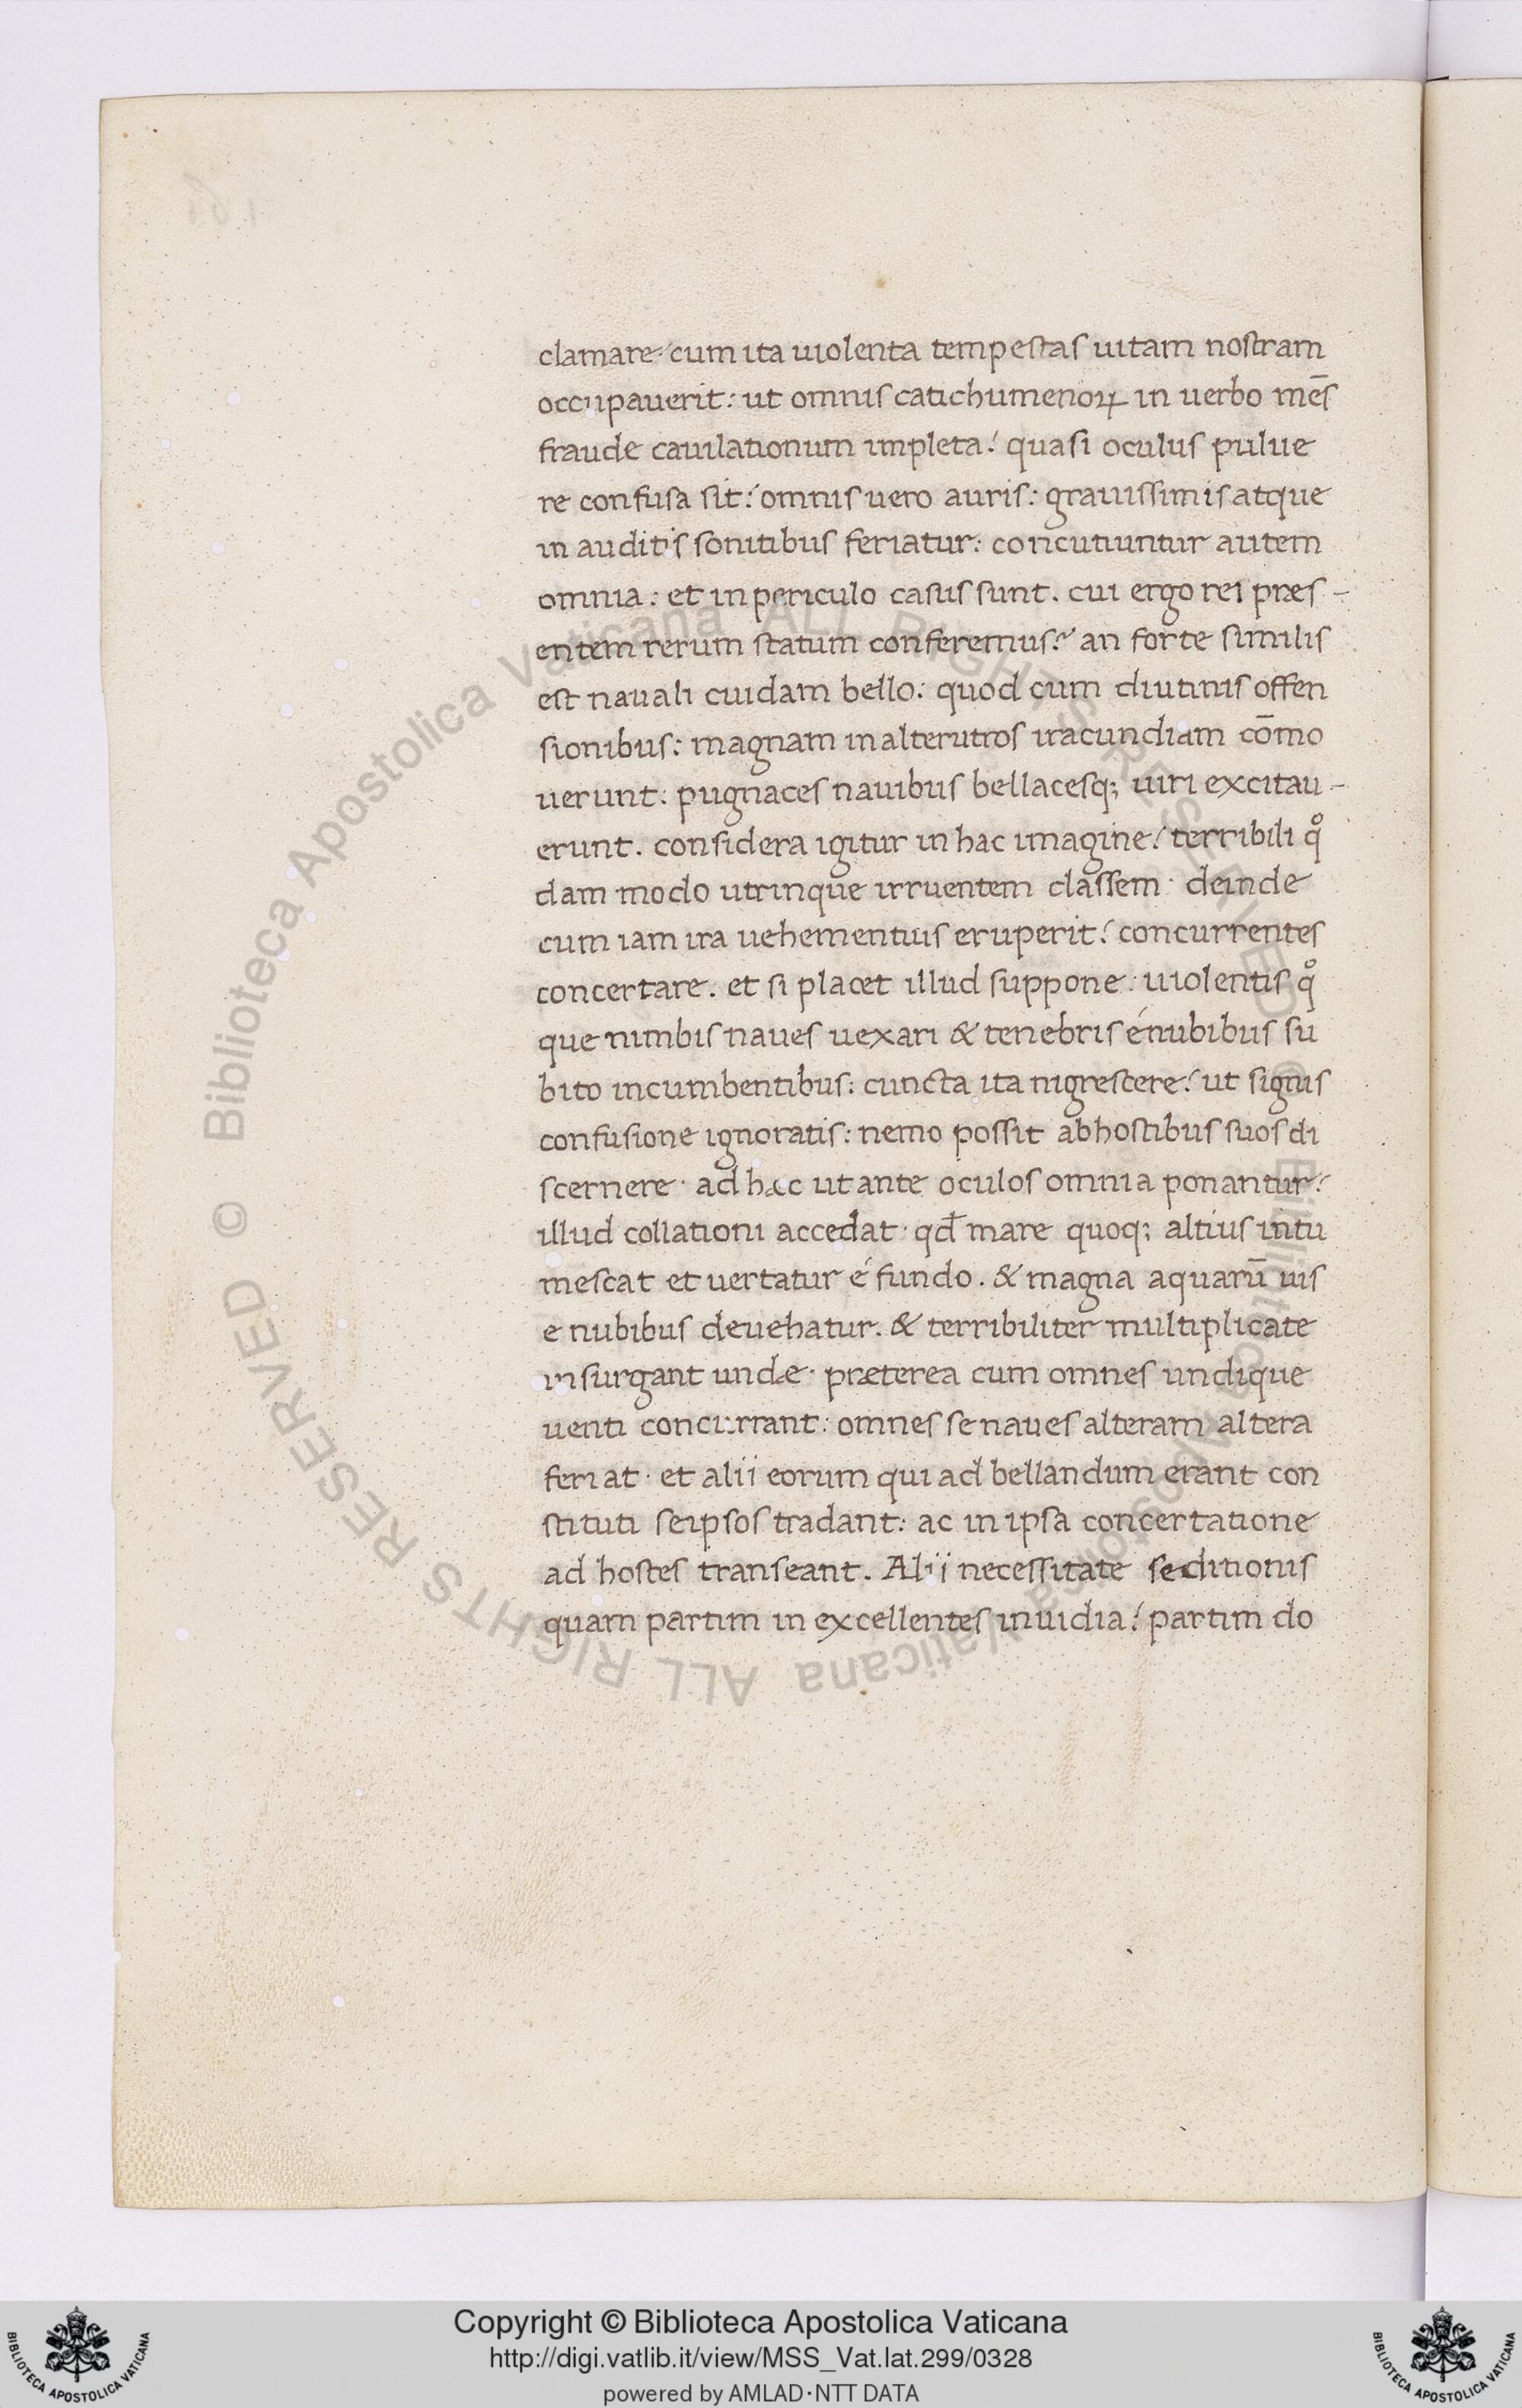 clamare· cum ita uiolenta tempestas uitam nostram
occupauerit: ut omnis catichumenoꝝ in uerbo mēs
fraude cauilationum impleta! quasi oculus pulue
re confusa sit! omnis uero auris: grauissimis atque
in auditis sonitibus feriatur: concutiuntur autem
omnia: et in periculo casus sunt. cui ergo rei præs-
entem rerum statum conferemus? an forte similis
est nauali cuidam bello: quod cum diutinis offen
sionibus: magnam in alterutros iracundiam cōmo
uerunt: pugnaces nauibus bellacesq; uiri excitau-
erunt. considera igitur in hac imagine! terribili qͦ
dam modo utrinque irruentem classem· deinde
cum iam ira uehementius eruperit! concurrentes
concertare. et si placet illud suppone: uiolentis qͦ
que nimbis naues uexari & tenebris é nubibus su
bito incumbentibus: cuncta ita nigrescere! ut signis
confusione ignoratis: nemo possit ab hostibus suos di
scernere· ad hæc ut ante oculos omnia ponantur!
illud collationi accedat· qđ mare quoq; altius intu
mescat et uertatur é fundo. & magna aquarū uis
e nubibus deuehatur. & terribiliter multiplicate
insurgant undæ· præterea cum omnes undique
uenti concurrant: omnes se naues alteram altera
feriat· et alii eorum qui ad bellandum erant con
stituti seipsos tradant: ac in ipsa concertatione
ad hostes transeant. Alii necessitate seditionis
quam partim in excellentes inuidia! partim do
Copyright © Biblioteca Apostolica Vaticana
http://digi.vatlib.it/view/MSS_Vat.lat.299/0328
powered by AMLAD·NTT DATA
BIBLIOTECA APOSTOLICA VATICANA
BIBLIOTECA APOSTOLICA VATICANA
© Biblioteca Apostolica Vaticana ALL RIGHTS RESERVED © Biblioteca Apostolica Vaticana ALL RIGHTS RESERVED